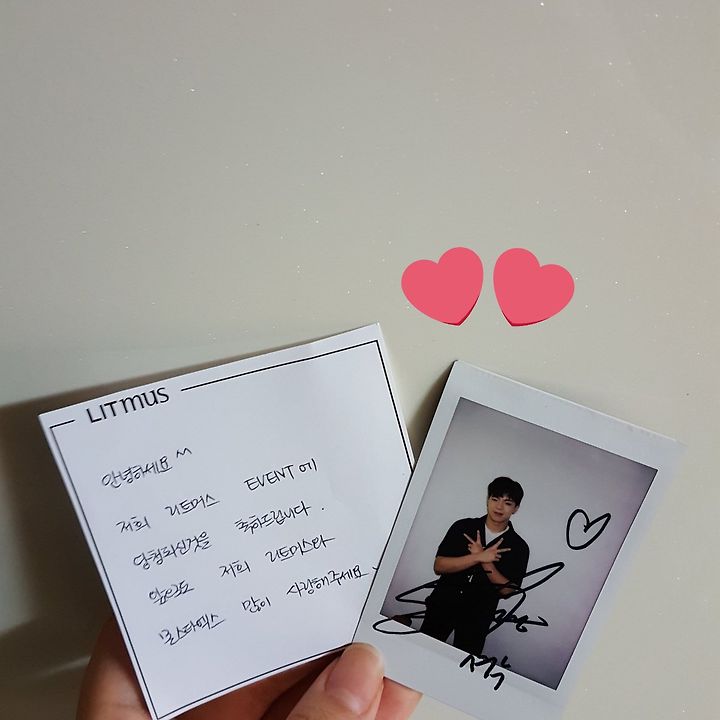 LITMUS
안녕하세요 ^^
저희 리트머스 EVENT에
당첨되신것을 축하드립니다.
앞으로도 저희 리트머스와
몬스타엑스 많이 사랑해주세요